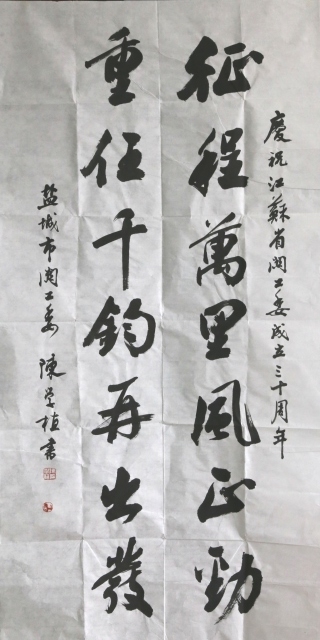 慶祝江蘇省關工委成立三十周年
征程萬里風正勁
重任千鈞再出發
盐城市関工委 陳学植書